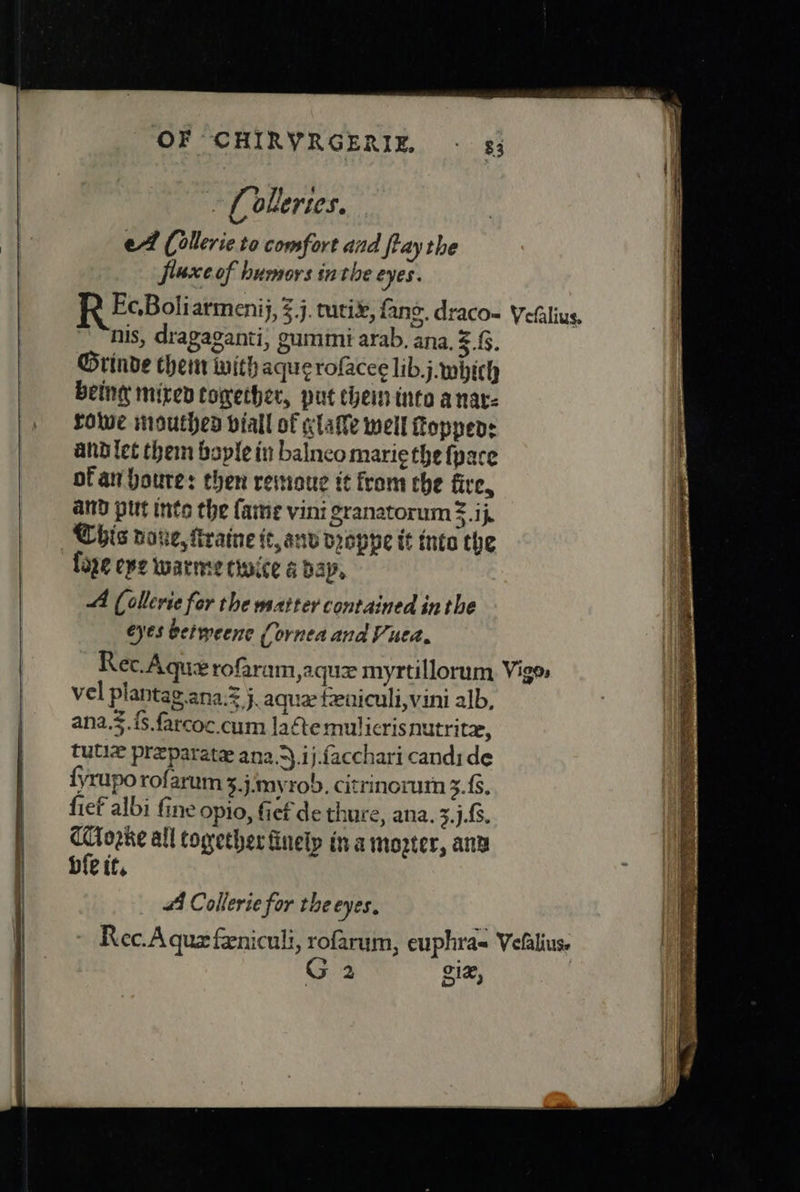 OF CHIRVRGERIE. 83
Colleries.
A Collerie to comfort and ſtay the
fluxe of humors in the eyes.
REc.Boli armenij, ℥.j. tutiæ, ſang. draco- Veſalius.
nis, dragaganti, gummi arab. ana. ℥.ſs.
Grinde them with aque roſaceę lib.j. which
being mixed together, put them into a nar-
rowe mouthed viall of glaſſe well ſtopped:
and let them boyle in balneo marie the ſpace
of an houre: then remoue it from the fire,
and put into the ſame vini granatorum ℥.ij.
This done, ſtraine it, and droppe it into the
ſore eye warme twice a day.
A Collerie for the matter contained in the
eyes betweene Cornea and Vuea.
Rec. Aquæ roſarum, aquæ myrtillorum Vigo,
vel plantag. ana. ℥ j. aquæ fæniculi, vini alb,
ana.℥.ſs. ſarcoc. cum lacte mulieris nutritæ,
tutiæ præparatæ ana.℈.ij. ſacchari candi de
ſyrupo roſarum ʒ.j. myrob. citrinorum ʒ.ſs.
ſief albi ſine opio, ſief de thure, ana. ʒ.j.ſs.
Worke all together finely in a morter, and
vſe it.
A Collerie for the eyes.
Rec. Aquæ fæniculi, roſarum, euphra- Veſalius.
G 2 giæ,